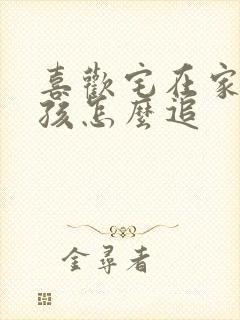 喜歡宅在家
孩怎麼追
金尋者